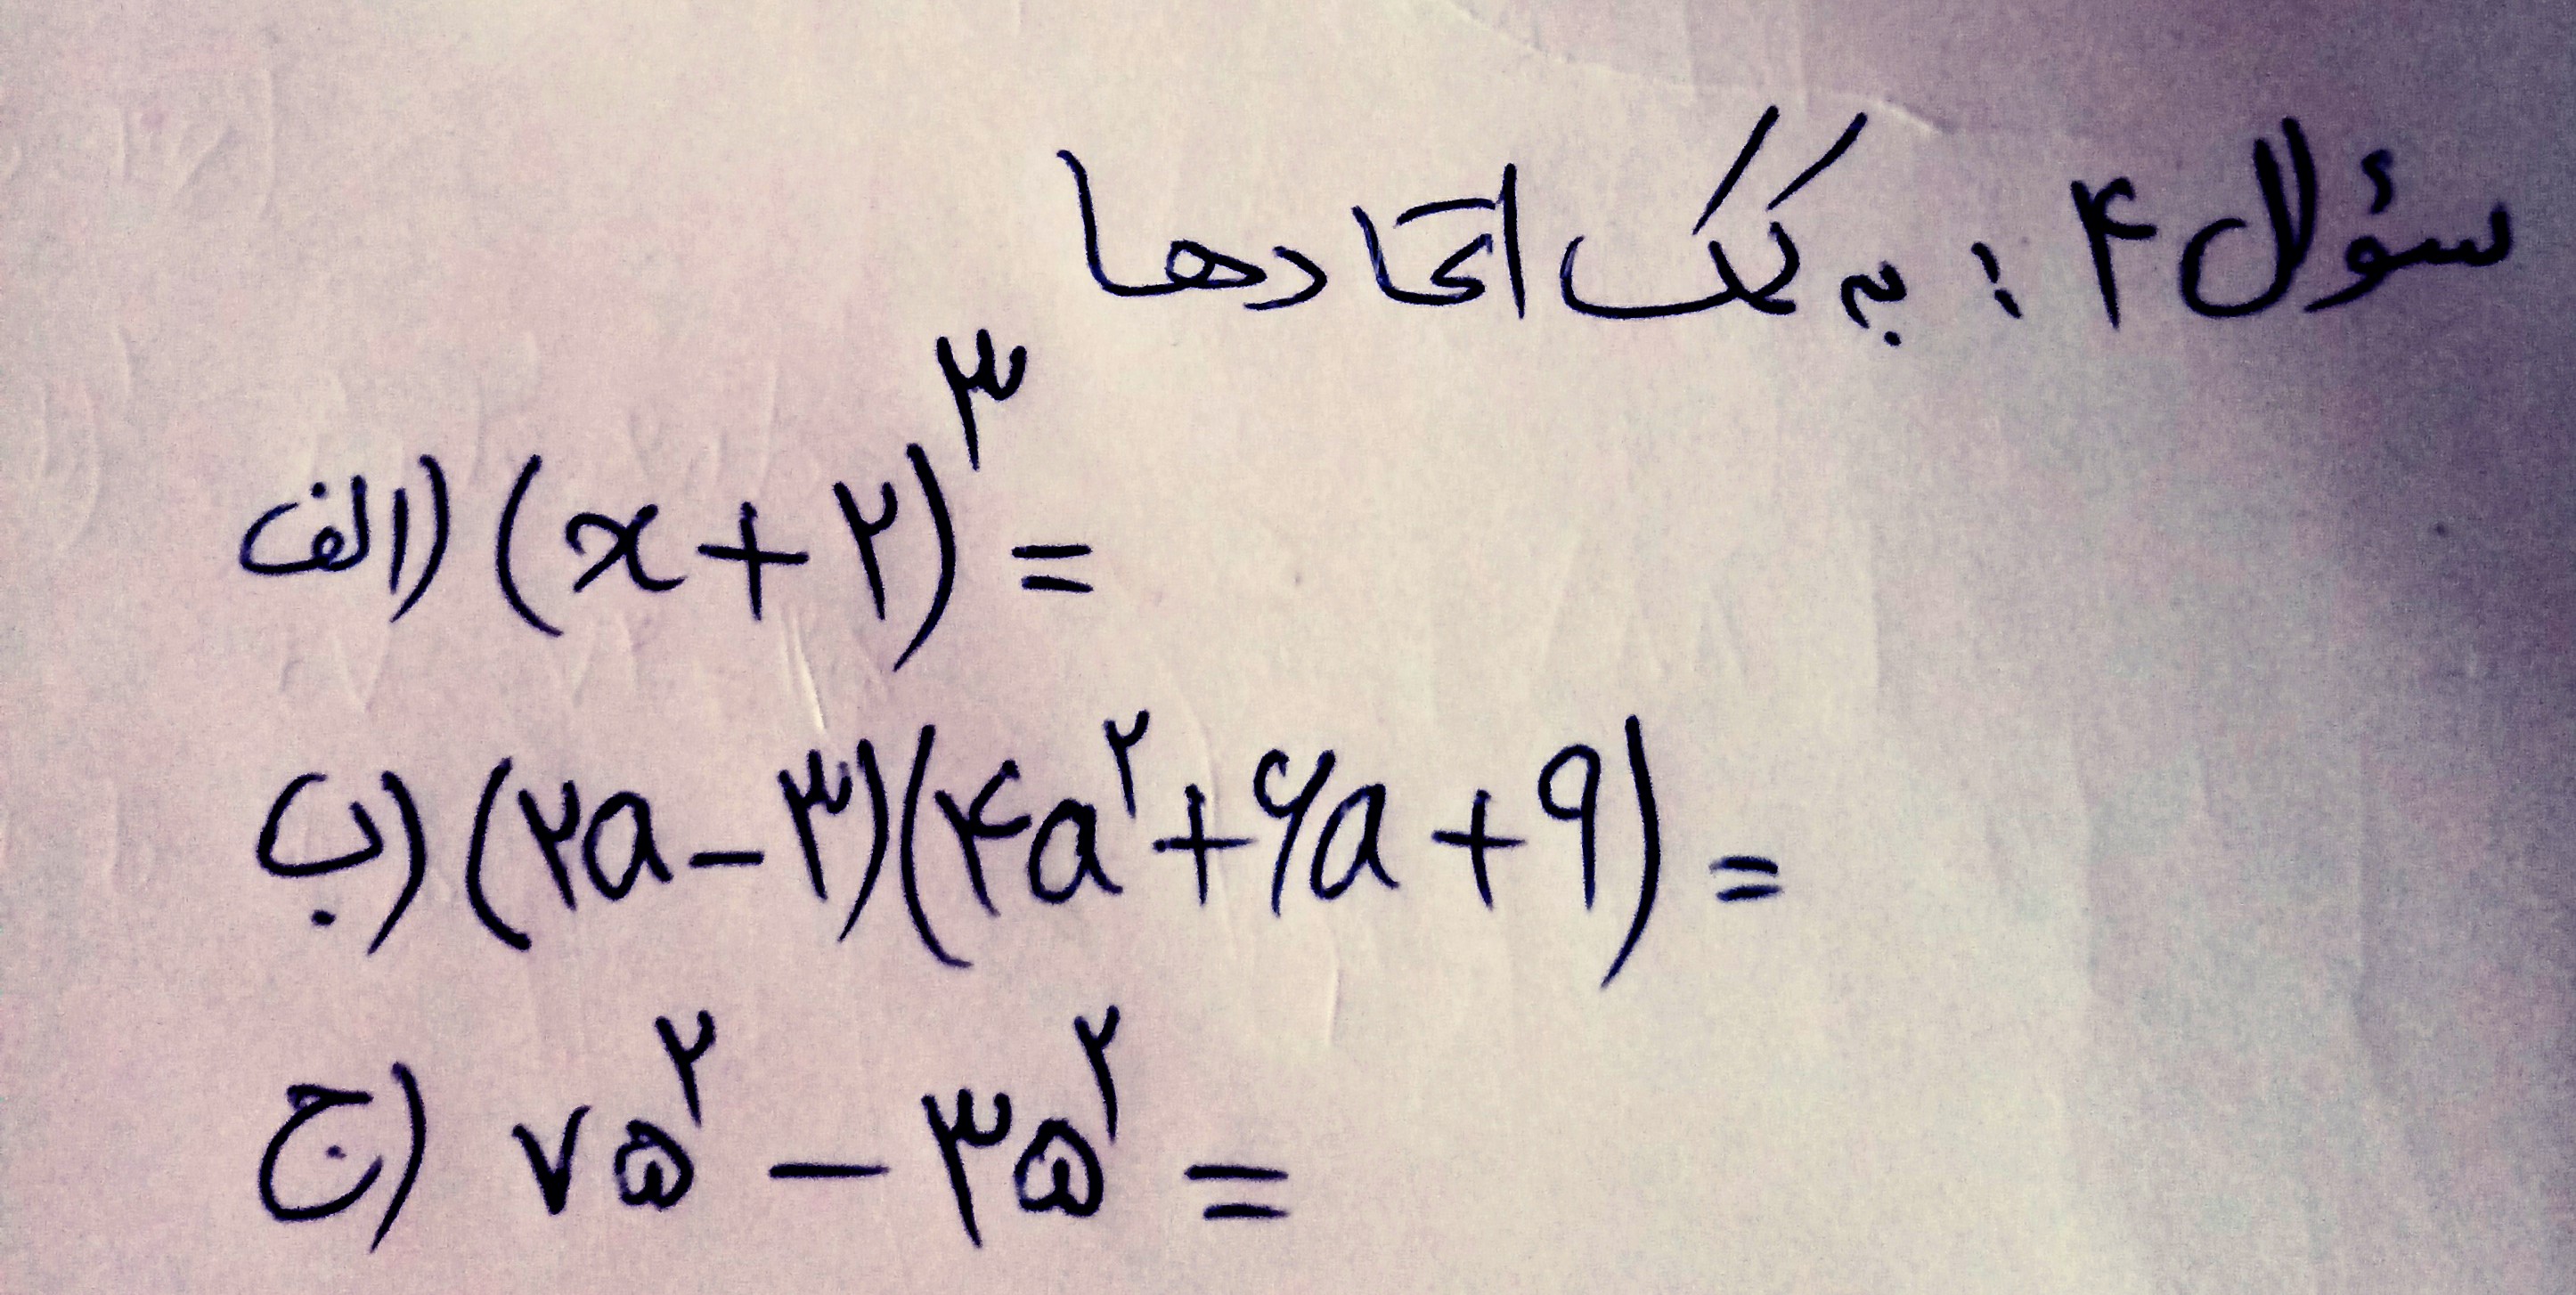 سؤال ۴ : به کمک اتحادها
الف) (x + ۲)^۳ =
ب) (۲a - ۳)(۴a^۲ + ۶a + ۹) =
ج) ۷۵^۲ - ۳۵^۲ =